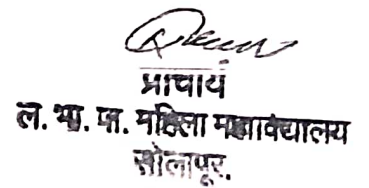 प्राचार्य
ल. भा. पा. महिला महाविद्यालय
सोलापूर.